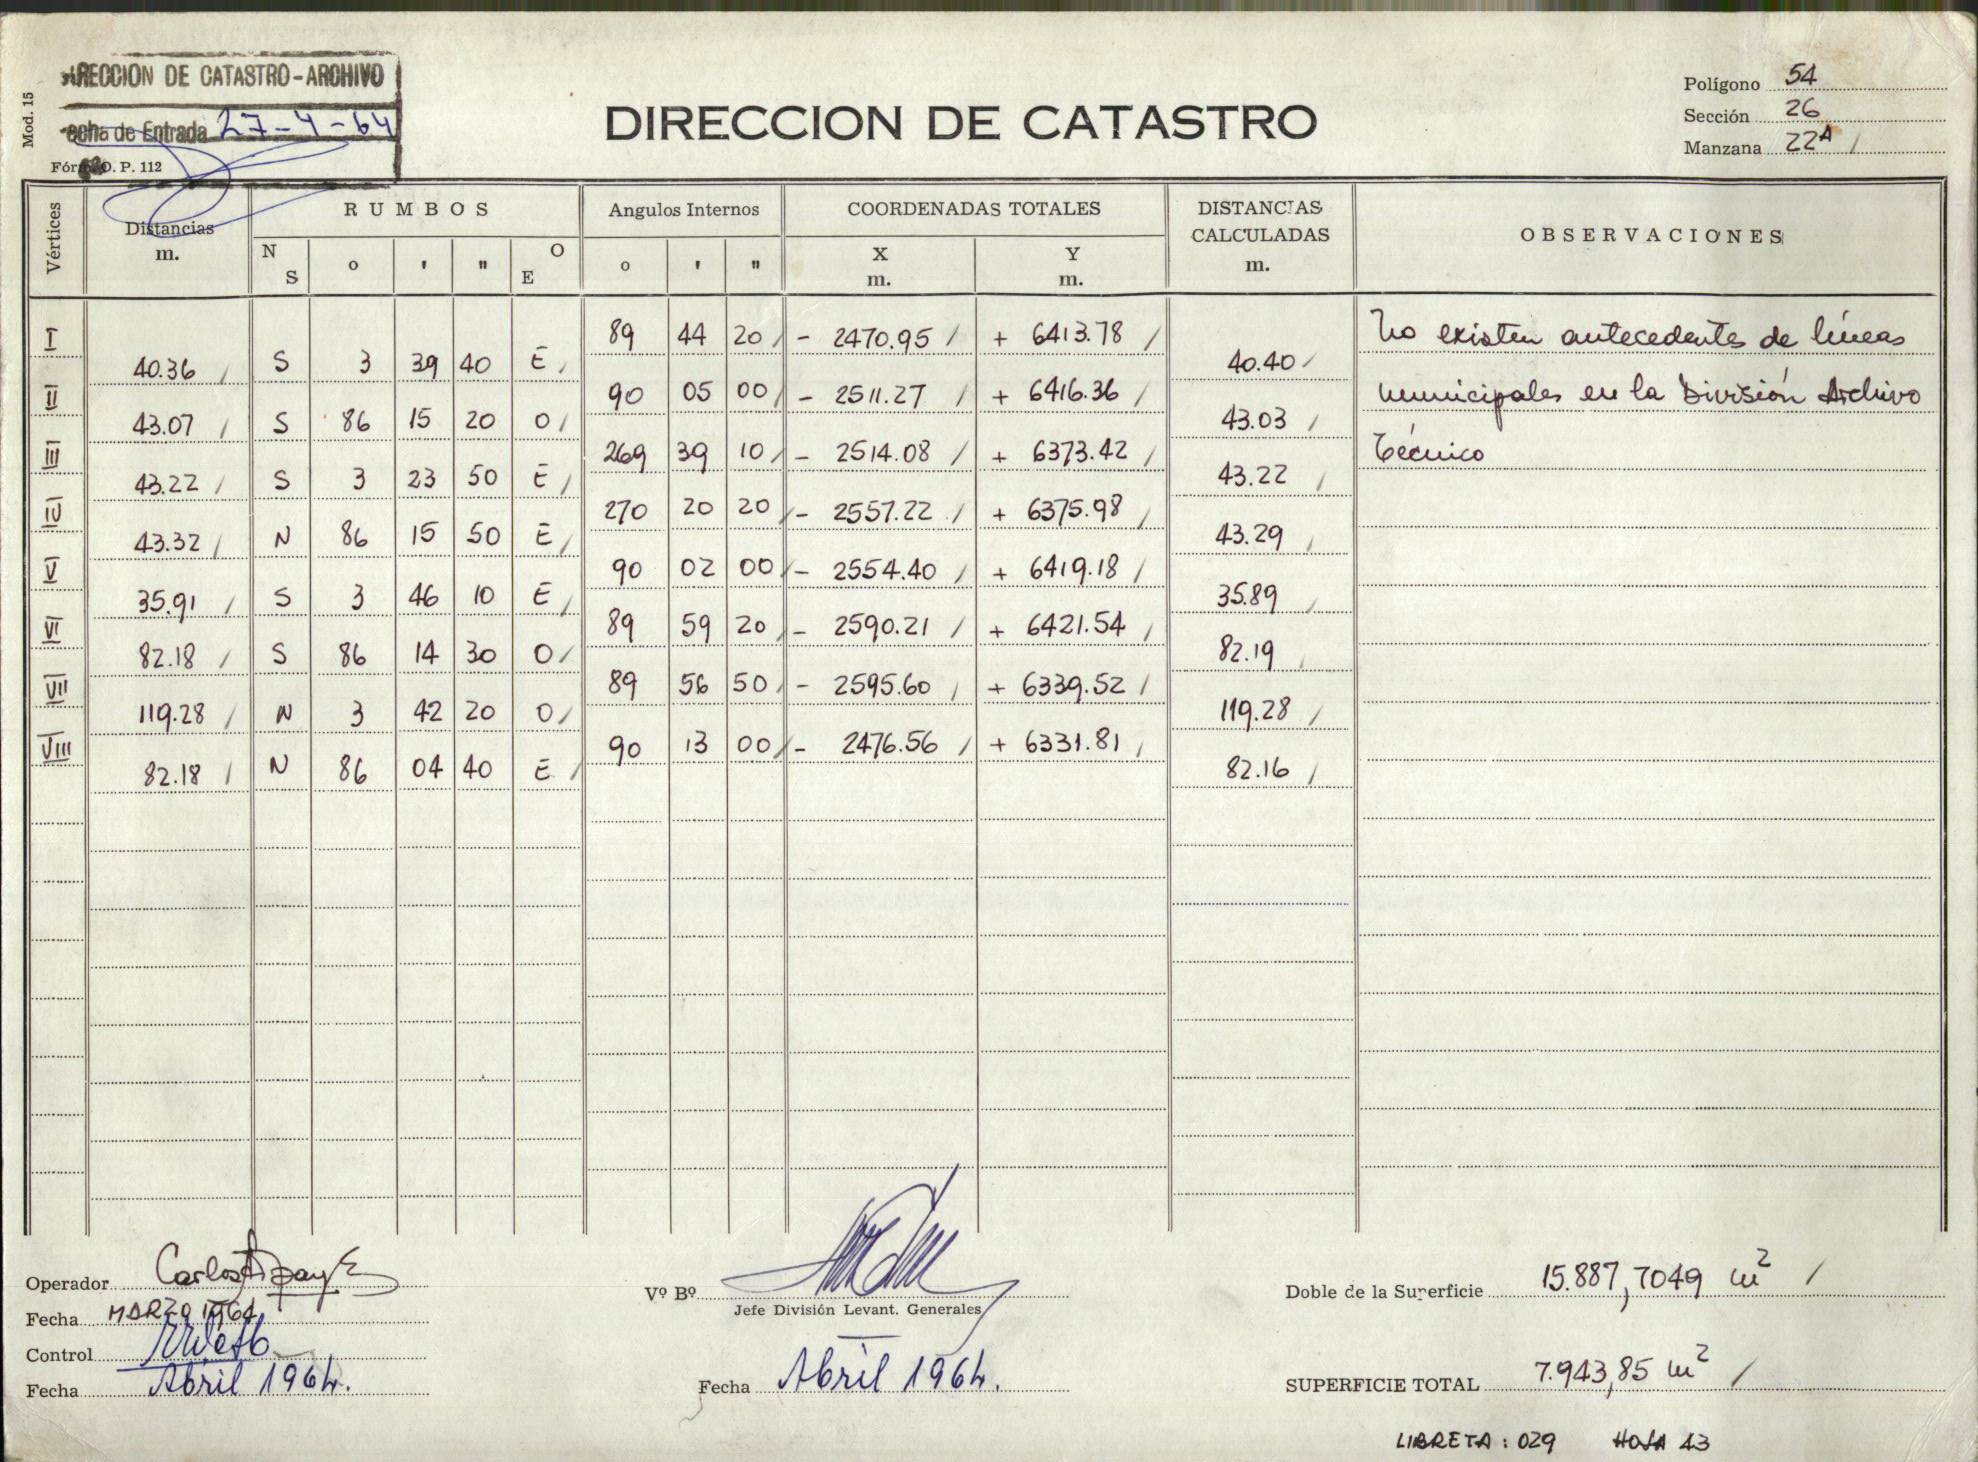 DIRECCION DE CATASTRO-ARCHIVO
Fecha de Entrada 27-4-64
Mod. 15
O. P. 112
DIRECCION DE CATASTRO
Polígono 54
Sección 26
Manzana 22A /
Vértices Distancias m. RUMBOS N S o ' " O E Angulos Internos o ' " COORDENADAS TOTALES X m. Y m. DISTANCIAS CALCULADAS m. OBSERVACIONES
I 89 44 20 / - 2470.95 / + 6413.78 / No existen antecedentes de líneas
40.36 / S 3 39 40 E / 40.40 /
II 90 05 00 / - 2511.27 / + 6416.36 / municipales en la División Archivo
43.07 / S 86 15 20 O / 43.03 /
III 269 39 10 / - 2514.08 / + 6373.42 / Técnico
43.22 / S 3 23 50 E / 43.22 /
IV 270 20 20 / - 2557.22 / + 6375.98 /
43.32 / N 86 15 50 E / 43.29 /
V 90 02 00 / - 2554.40 / + 6419.18 /
35.91 / S 3 46 10 E / 35.89 /
VI 89 59 20 / - 2590.21 / + 6421.54 /
82.18 / S 86 14 30 O / 82.19 /
VII 89 56 50 / - 2595.60 / + 6339.52 /
119.28 / N 3 42 20 O / 119.28 /
VIII 90 13 00 / - 2476.56 / + 6331.81 /
82.18 / N 86 04 40 E / 82.16 /
Operador Carlos
Fecha MARZO 1964
Control
Fecha Abril 1964.
Vº Bº
Jefe División Levant. Generales
Fecha Abril 1964.
Doble de la Superficie 15.887,7049 m2 /
SUPERFICIE TOTAL 7.943,85 m2 /
LIBRETA : 029 HOJA 43